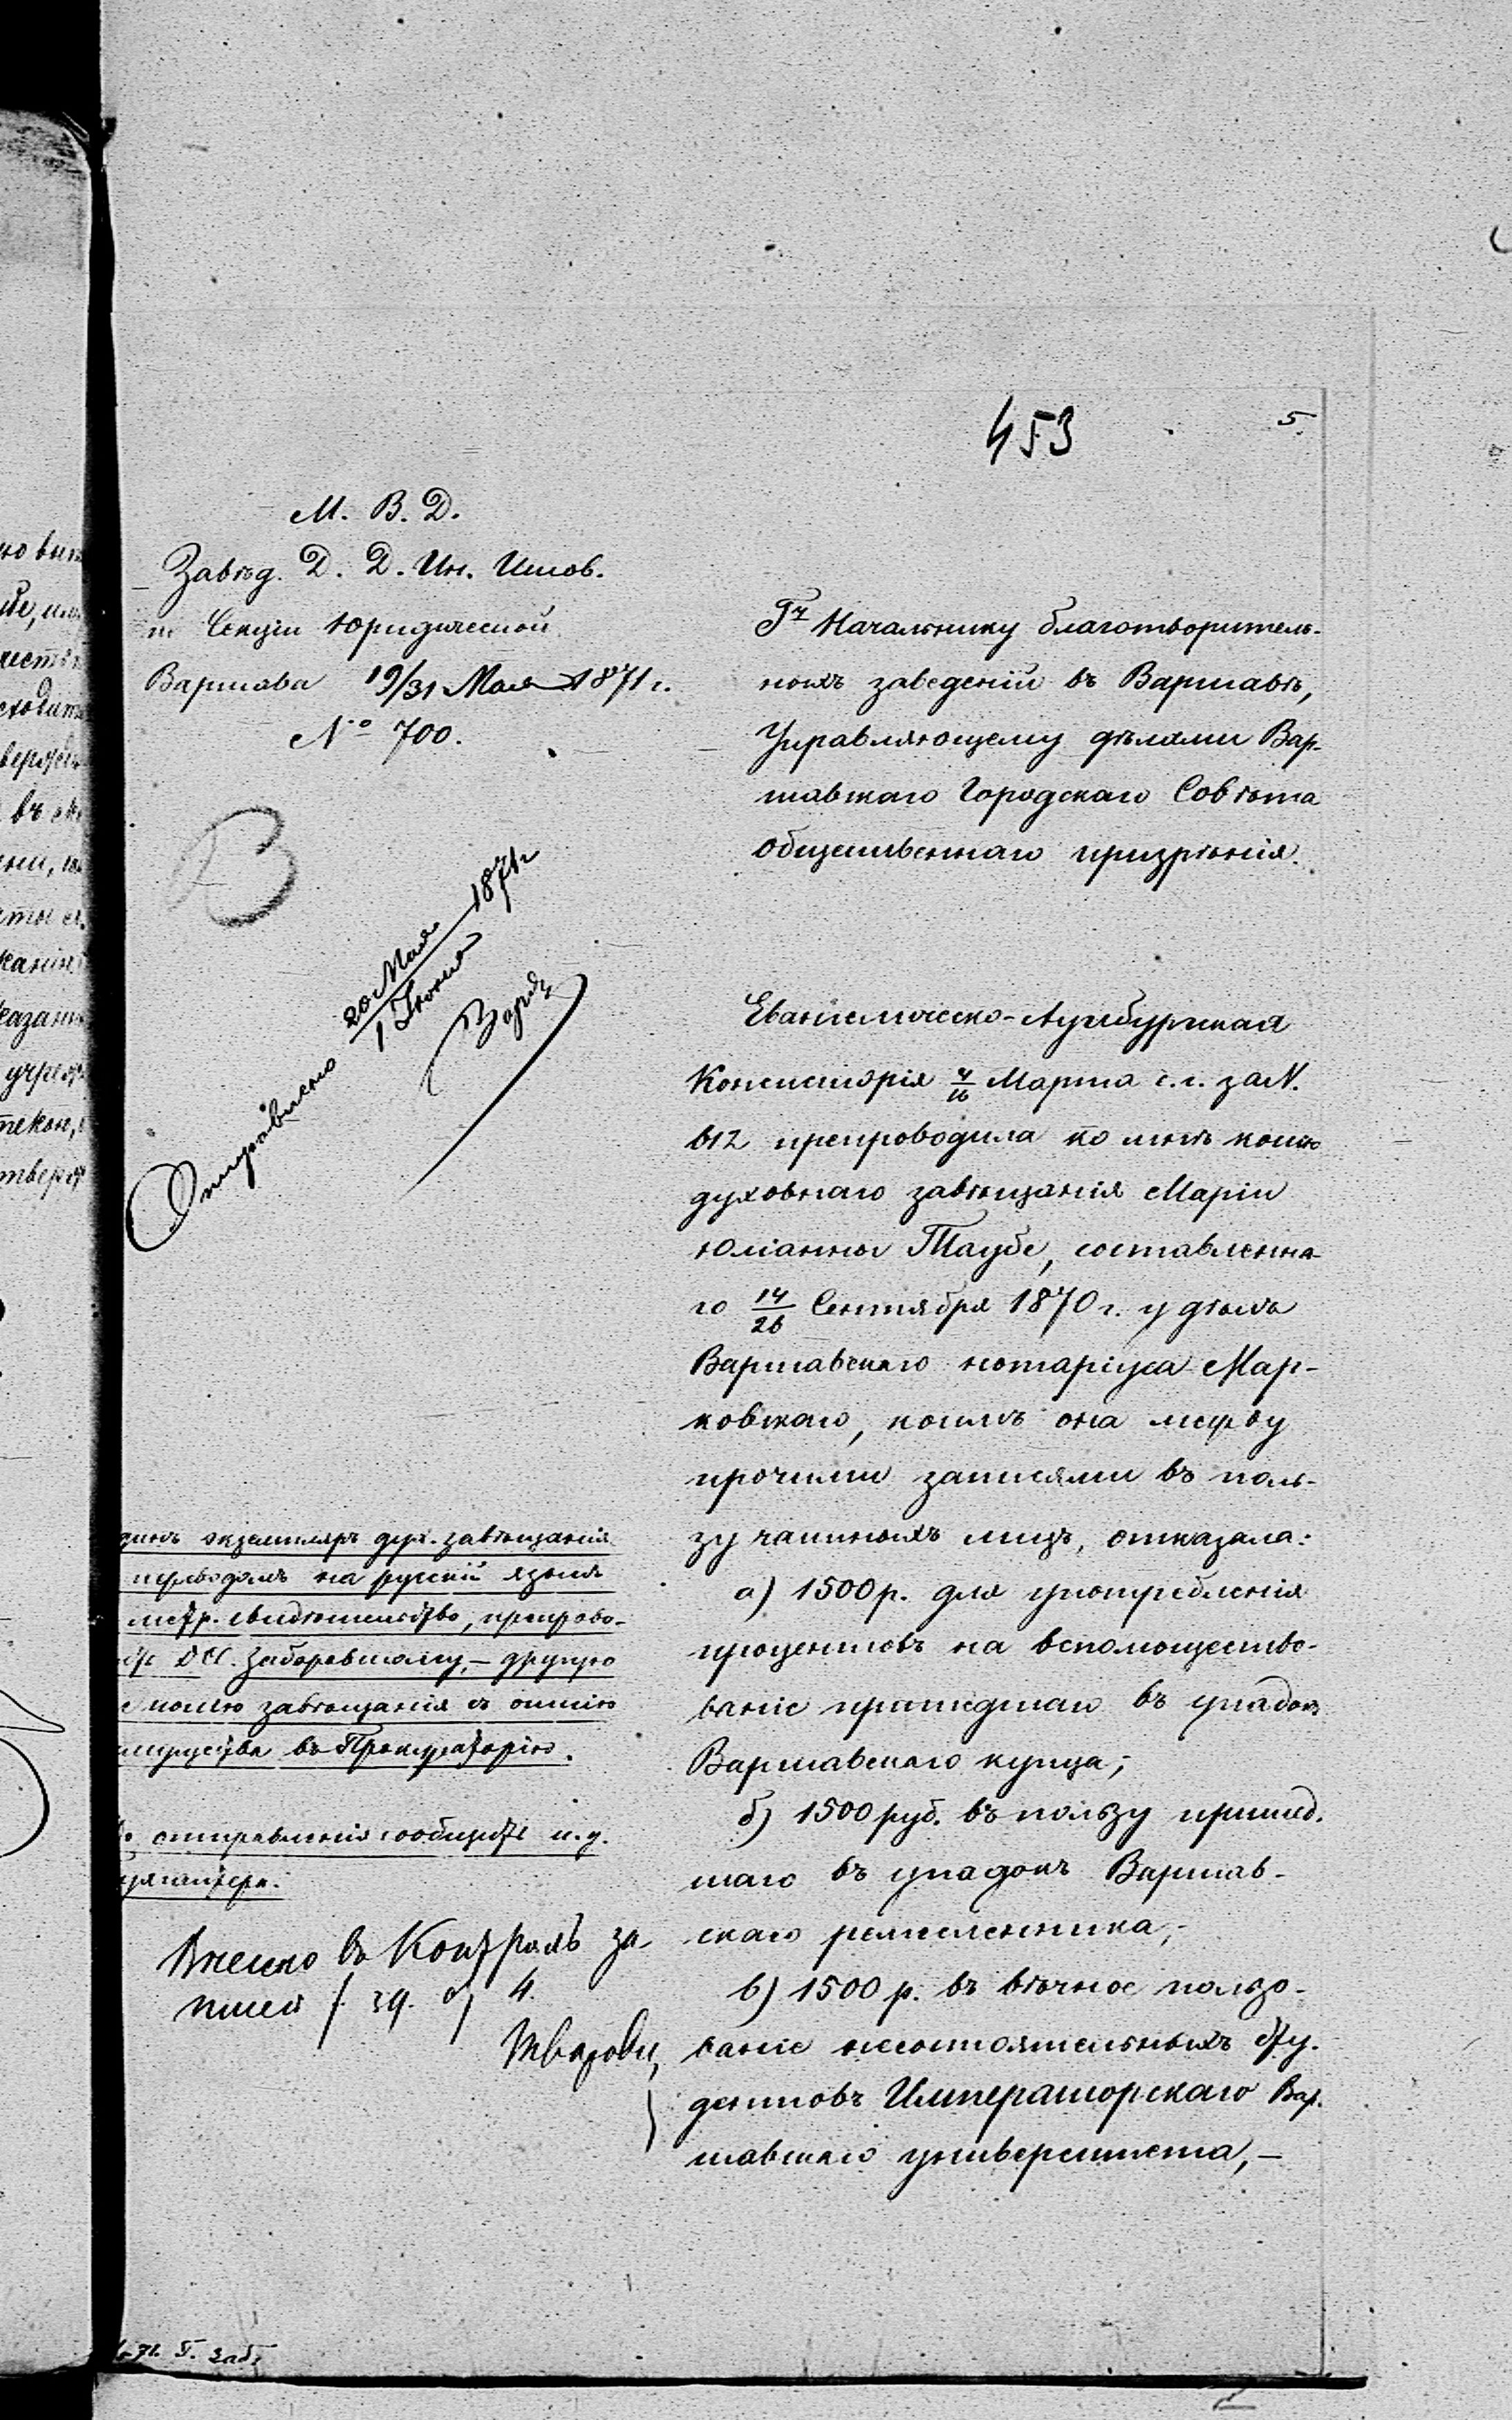 453
5.
М. В. Д.
Завѣд. Д. Д. Ин. Испов.
Секціи Юридической
Варшава 19/31 Мая 1871 г.
№ 700.
Гну Начальнику благотворитель-
ныхъ заведеній въ Варшавѣ,
Управляющему дѣлами Вар-
шавскаго Городскаго Совѣта
общественнаго призрѣнія.
В
Отправлено 20 Мая / 1 Іюня 1871 г
Евангелическо-Аугсбургская
Консисторія 4/16 Марта с. г. за N.
612 препроводила ко мнѣ копію
духовнаго завѣщанія Маріи
Юліанны Таубе, составленна-
го 14/26 Сентября 1870 г. у дѣлъ
Варшавскаго нотаріуса Мар-
ковскаго, коимъ она между
прочими записями въ поль-
зу частныхъ лицъ, отказала:
а) 1500 р. для употребленія
процентовъ на вспомощество-
ваніе пришедшаго въ упадокъ
Варшавскаго купца;
б) 1500 руб. въ пользу пришед-
шаго въ упадокъ Варшав-
скаго ремесленника;
в) 1500 р. въ вѣчное пользо-
ваніе несостоятельныхъ сту-
дентовъ Императорскаго Вар-
шавскаго университета,—
динъ экземпляръ дух. завѣщанія
переводомъ на русскій языкъ
метр. свидѣтельство, препрово-
Заборовскому,— другую
копію завѣщанія съ описью
имущества въ Прокураторію.
отправленія сообщить и. д.
Внесено въ Контроль за-
писей f. 39. 4.
71. Заб.